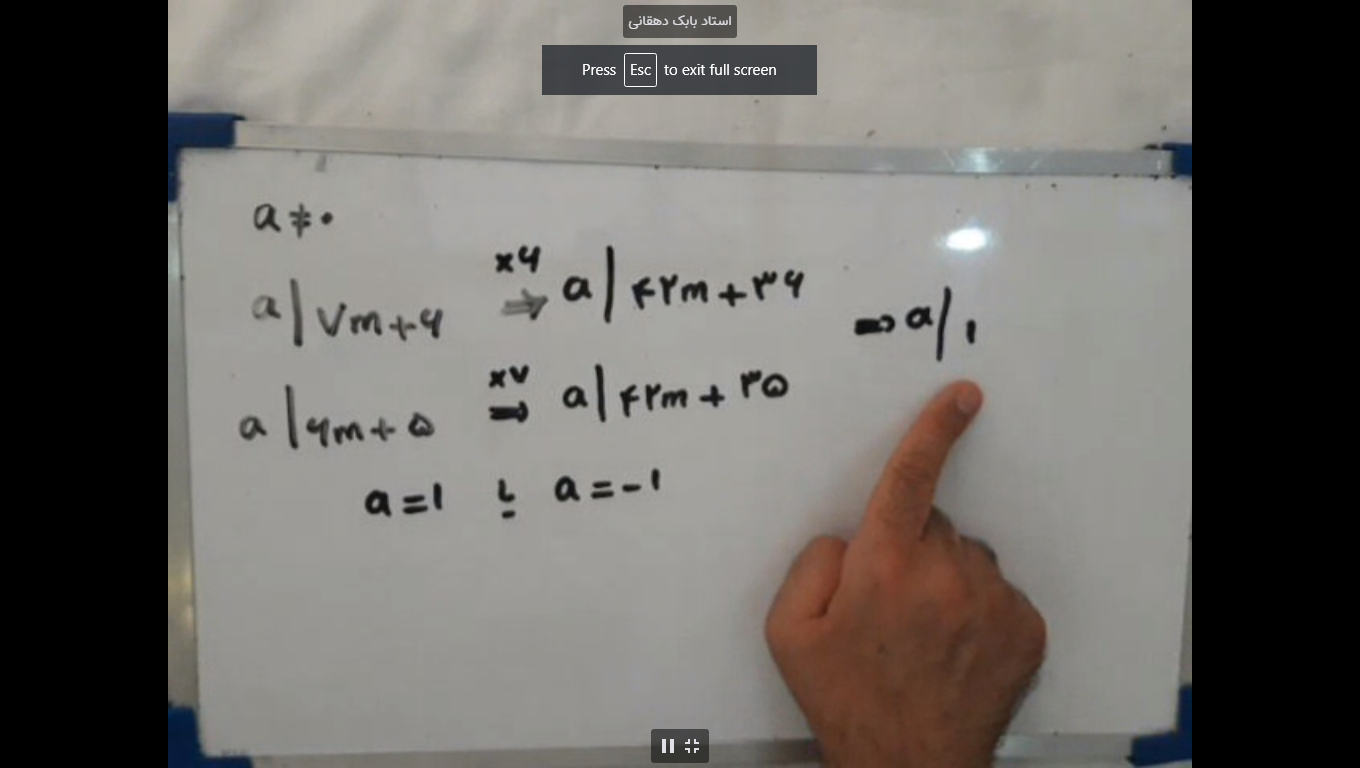 استاد بابک دهقانی
Press Esc to exit full screen
a≠۰
a|۷m+۶ ×۶ ⇒ a|۴۲m+۳۶
⇒ a|۱
a|۶m+۵ ×۷ ⇒ a|۴۲m+۳۵
a=۱ یا a=-۱